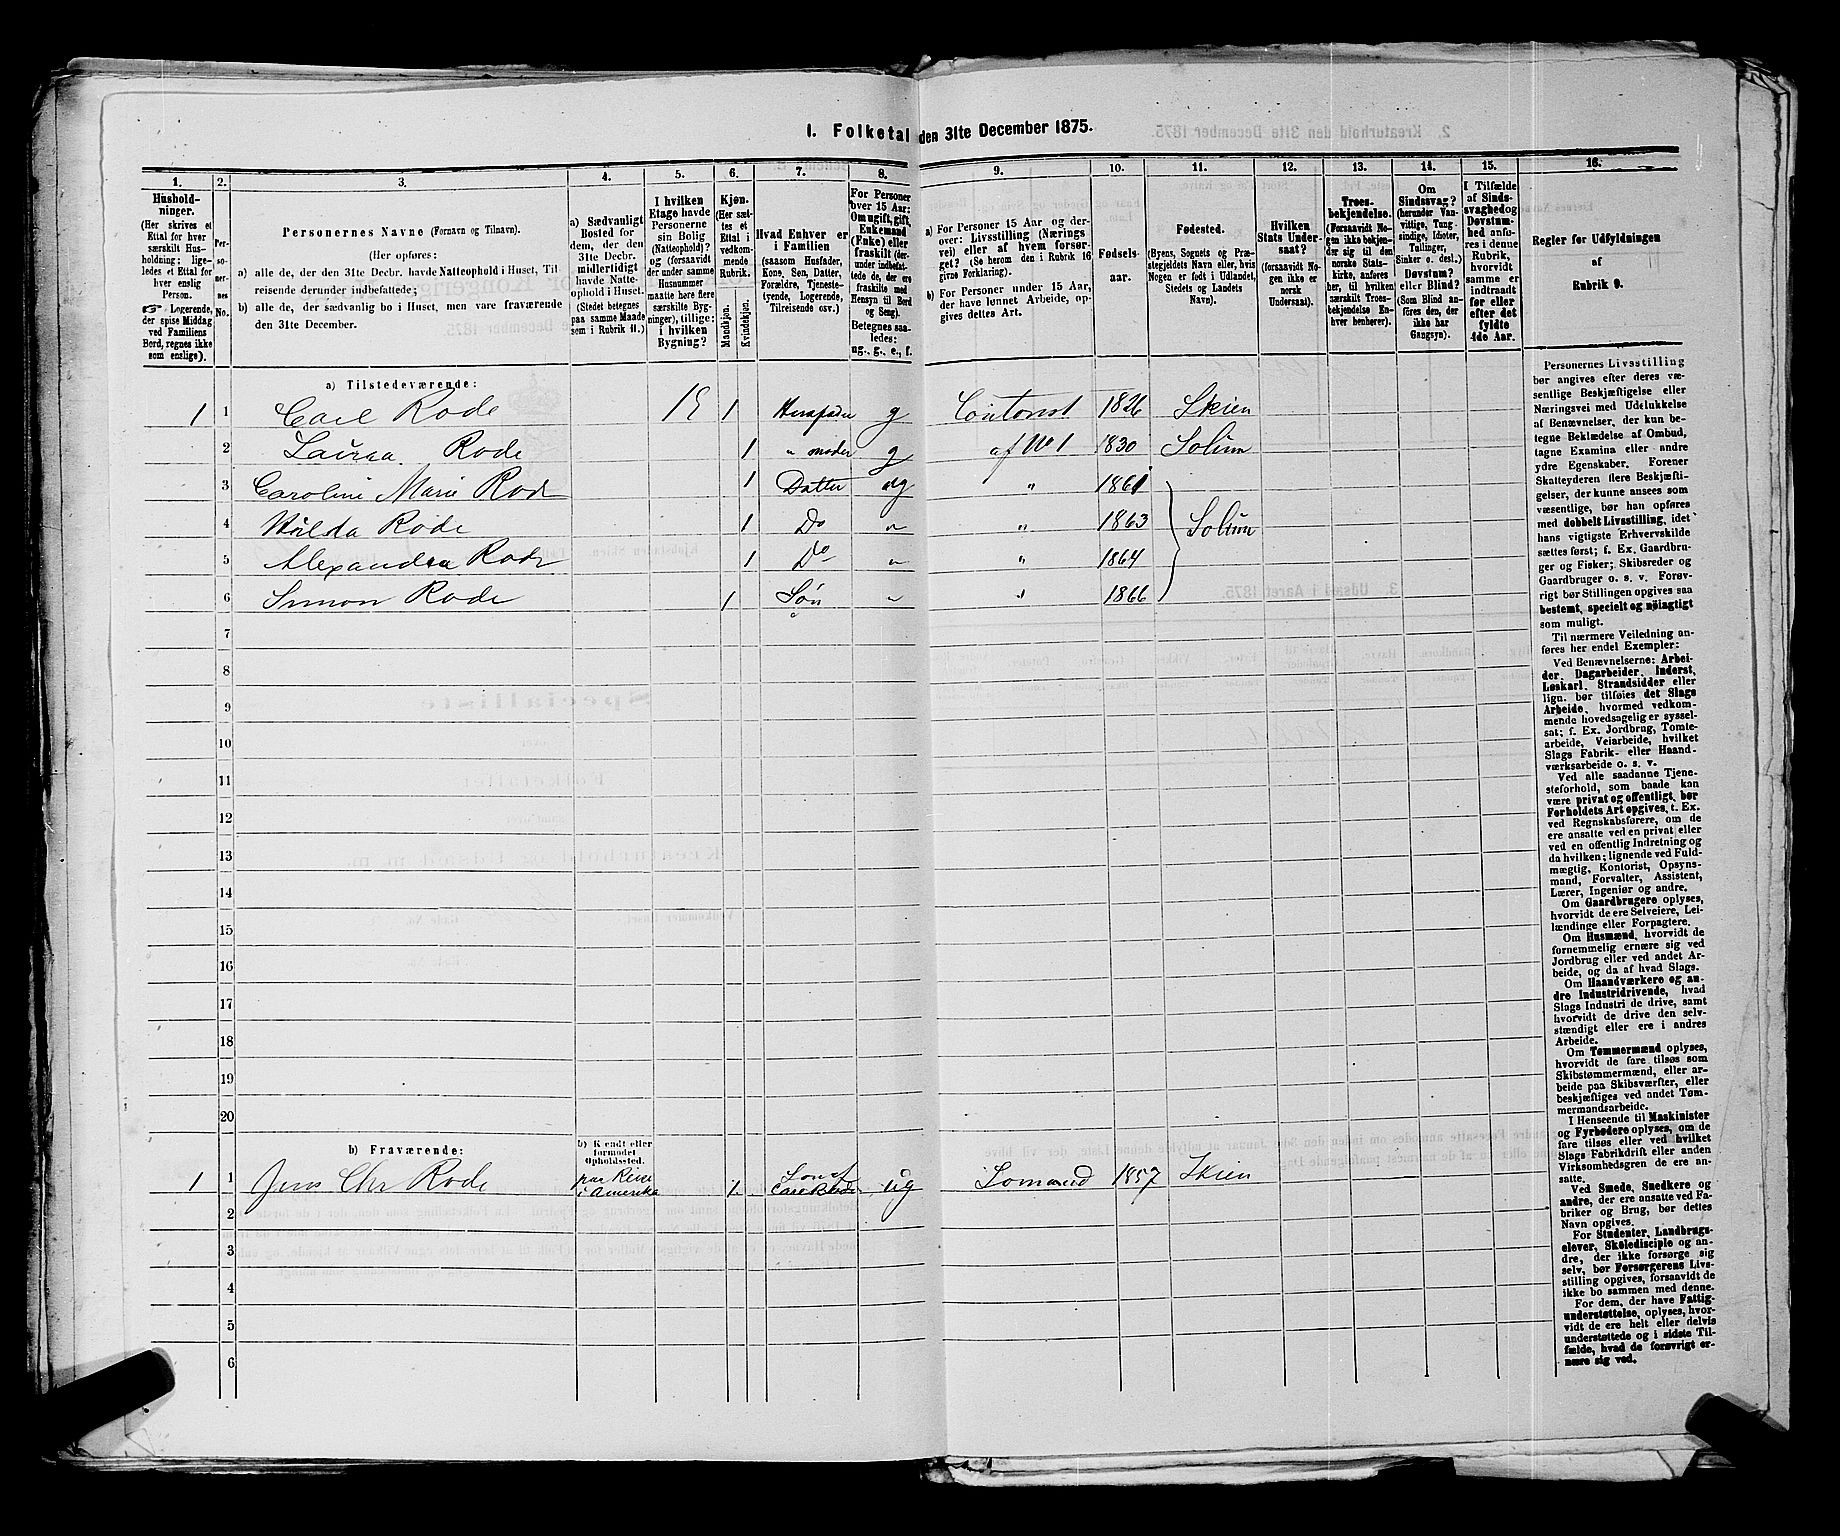 1. Folketal den 31te December 1875.
1.
Hushold-
ninger.
(Her skrives et
Ettal for hver
særskilt Hus-
holdning; lige-
ledes et Ettal for
hver enslig
Person.
☞ Logerende,
der spise Middag
ved Familiens
Bord, regnes ikke
som enslige).
2.
Per-
so-
ner-
nes
No.
3.
Personernes Navne (Fornavn og Tilnavn).
(Her opføres:
a) alle de, der den 31te Decbr. havde Natteophold i Huset, Til-
reisende derunder indbefattede;
b) alle de, der sædvanlig bo i Huset, men vare fraværende
den 31te December.
4.
a) Sædvanligt
Bosted for
dem, der den
31te Decbr.
midlertidigt
havde Natte-
ophold i Huset.
(Stedet betegnes
paa samme Maade
som i Rubrik 11.)
5.
I hvilken
Etage havde
Personerne
sin Bolig
(Natteophold)?
og (forsaavidt
der under samme
Husnummer
maatte høre flere
særskilte Byg-
ninger), tillige:
i hvilken
Bygning?
6.
Kjøn.
(Her sæt-
tes et
Ettal i
vedkom-
mende
Rubrik.
Mandkjøn.
Kvindekjøn.
7.
Hvad Enhver er
i Familien
(saasom Husfader,
Kone, Søn, Datter,
Forældre, Tjeneste-
tyende, Logerende,
Tilreisende osv.)
8.
For Personer
over 15 Aar:
Om ugift, gift,
Enkemand
(Enke) eller
fraskilt (der-
under indbefat-
tede de, der ere
fraskilte med
Hensyn til Bord
og Seng).
Betegnes saa-
ledes:
ug., g., e., f.
9.
a) For Personer 15 Aar og der-
over: Livsstilling (Nærings-
vei) eller af hvem forsør-
get? (Se herom den i Rubrik 16
givne Forklaring).
b) For Personer under 15 Aar,
der have lønnet Arbeide, op-
gives dettes Art.
10.
Fødsels-
aar.
11.
Fødested.
(Byens, Sognets og Præ-
stegjeldets Navn eller, hvis
Nogen er født i Udlandet,
Stedets og Landets
Navn).
12.
Hvilken
Stats Under-
saat?
(forsaavidt No-
gen ikke er
norsk
Undersaat).
13.
Troes-
bekjendelse.
(Forsaavidt No-
gen ikke bekjen-
der sig til den
norske Stats-
kirke, anføres
her, til hvilken
særskilt Troes-
bekjendelse En-
hver henhører).
14.
Om
Sindssvag?
(herunder Van-
vittige, Tung-
sindige, Idioter,
Tullinger,
Sinker o. desl.)
Døvstum?
eller Blind?
(Som Blind an-
føres den, der
ikke har
Gangsyn).
15.
I Tilfælde
af Sinds-
svaghed og
Døvstum-
hed anfø-
res i denne
Rubrik,
hvorvidt
samme er
indtraadt
før eller
efter det
fyldte
4de Aar.
16.
Regler for Udfyldningen
af
Rubrik 9.
a) Tilstedeværende:
1 1 Carl Rode 1 E 1 Husfader g Contorist 1826 Skien
2 Laura Rode 1 " moder g af No 1 1830 Solum
3 Caroline Marie Rode 1 Datter ug " 1861
4 Hulda Rode 1 Do " " 1863 Solum
5 Alexandra Rode 1 Do " " 1864
6 Simon Rode 1 Søn " " 1866
7
8
9
10
11
12
13
14
15
16
17
18
19
20
b) Fraværende:
b) Kendt eller
formodet
Opholdssted.
1 1 Jens Chr Rode paa Reise i Amerika 1. Søn af Carl Rode ug Sømand 1857 Skien
2
3
4
5
6
Personernes Livsstilling
bør angives efter deres væ-
sentlige Beskjæftigelse eller
Næringsvei med Udelukkelse
af Benævnelser, der kun be-
tegne Beklædelse af Ombud,
tagne Examina eller andre
ydre Egenskaber. Forener
Skatteyderen flere Beskjæfti-
gelser, der kunne ansees som
væsentlige, bør han opføres
med dobbelt Livsstilling, idet
hans vigtigste Erhvervskilde
sættes først; f. Ex. Gaardbru-
ger og Fisker; Skibsreder og
Gaardbruger o. s. v. Forøv-
rigt bør Stillingen opgives saa
bestemt, specielt og nøiagtigt
som muligt.
Til nærmere Veiledning an-
føres her endel Exempler:
Ved Benævnelserne: Arbei-
der, Dagarbeider, Inderst,
Løskarl, Strandsidder eller
lign. bør tilføies det Slags
Arbeide, hvormed vedkom-
mende hovedsagelig er syssel-
sat; f. Ex. Jordbrug, Tomte-
arbeide, Veiarbeide, hvilket
Slags Fabrik- eller Haand-
værksarbeide o. s. v.
Ved alle saadanne Tjene-
steforhold, som baade kan
være privat og offentligt, bør
Forholdets Art opgives, t. Ex.
ved Regnskabsførere, om de
ere ansatte ved en privat eller
ved en offentlig Indretning og
da hvilken; lignende ved Fuld-
mægtig, Kontorist, Opsyns-
mand, Forvalter, Assistent,
Lærer, Ingeniør og andre.
Om Gaardbrugere oplyses,
hvorvidt de ere Selveiere, Lei-
lændinge eller Forpagtere.
Om Husmænd, hvorvidt de
fornemmelig ernære sig ved
Jordbrug eller ved andet Ar-
beide, og da af hvad Slags.
Om Haandværkere og an-
dre Industridrivende, hvad
Slags Industri de drive, samt
hvorvidt de drive den selv-
stændigt eller ere i andres
Arbeide.
Om Tømmermænd oplyses,
hvorvidt de fare tilsøs som
Skibstømmermænd, eller ar-
beide paa Skibsværfter, eller
beskjæftiges ved andet Tøm-
mermandsarbeide.
I Henseende til Maskinister
og Fyrbødere oplyses, om de
fare tilsøs eller ved hvilket
Slags Fabrikdrift eller anden
Virksomhedsgren de ere an-
satte.
Ved Smede, Snedkere og
andre, der ere ansatte ved Fa-
briker og Brug, bør dettes
Navn opgives.
For Studenter, Landbrugs-
elever, Skoledisciple og an-
dre, der ikke forsørge sig
selv, bør Forsørgerens Livs-
stilling opgives, forsaavidt de
ikke bo sammen med denne.
For dem, der have Fattig-
understøttelse, oplyses, hvor-
vidt de ere helt eller delvis
understøttede og i sidste Til-
fælde, hvad de forøvrigt er-
nære sig ved.